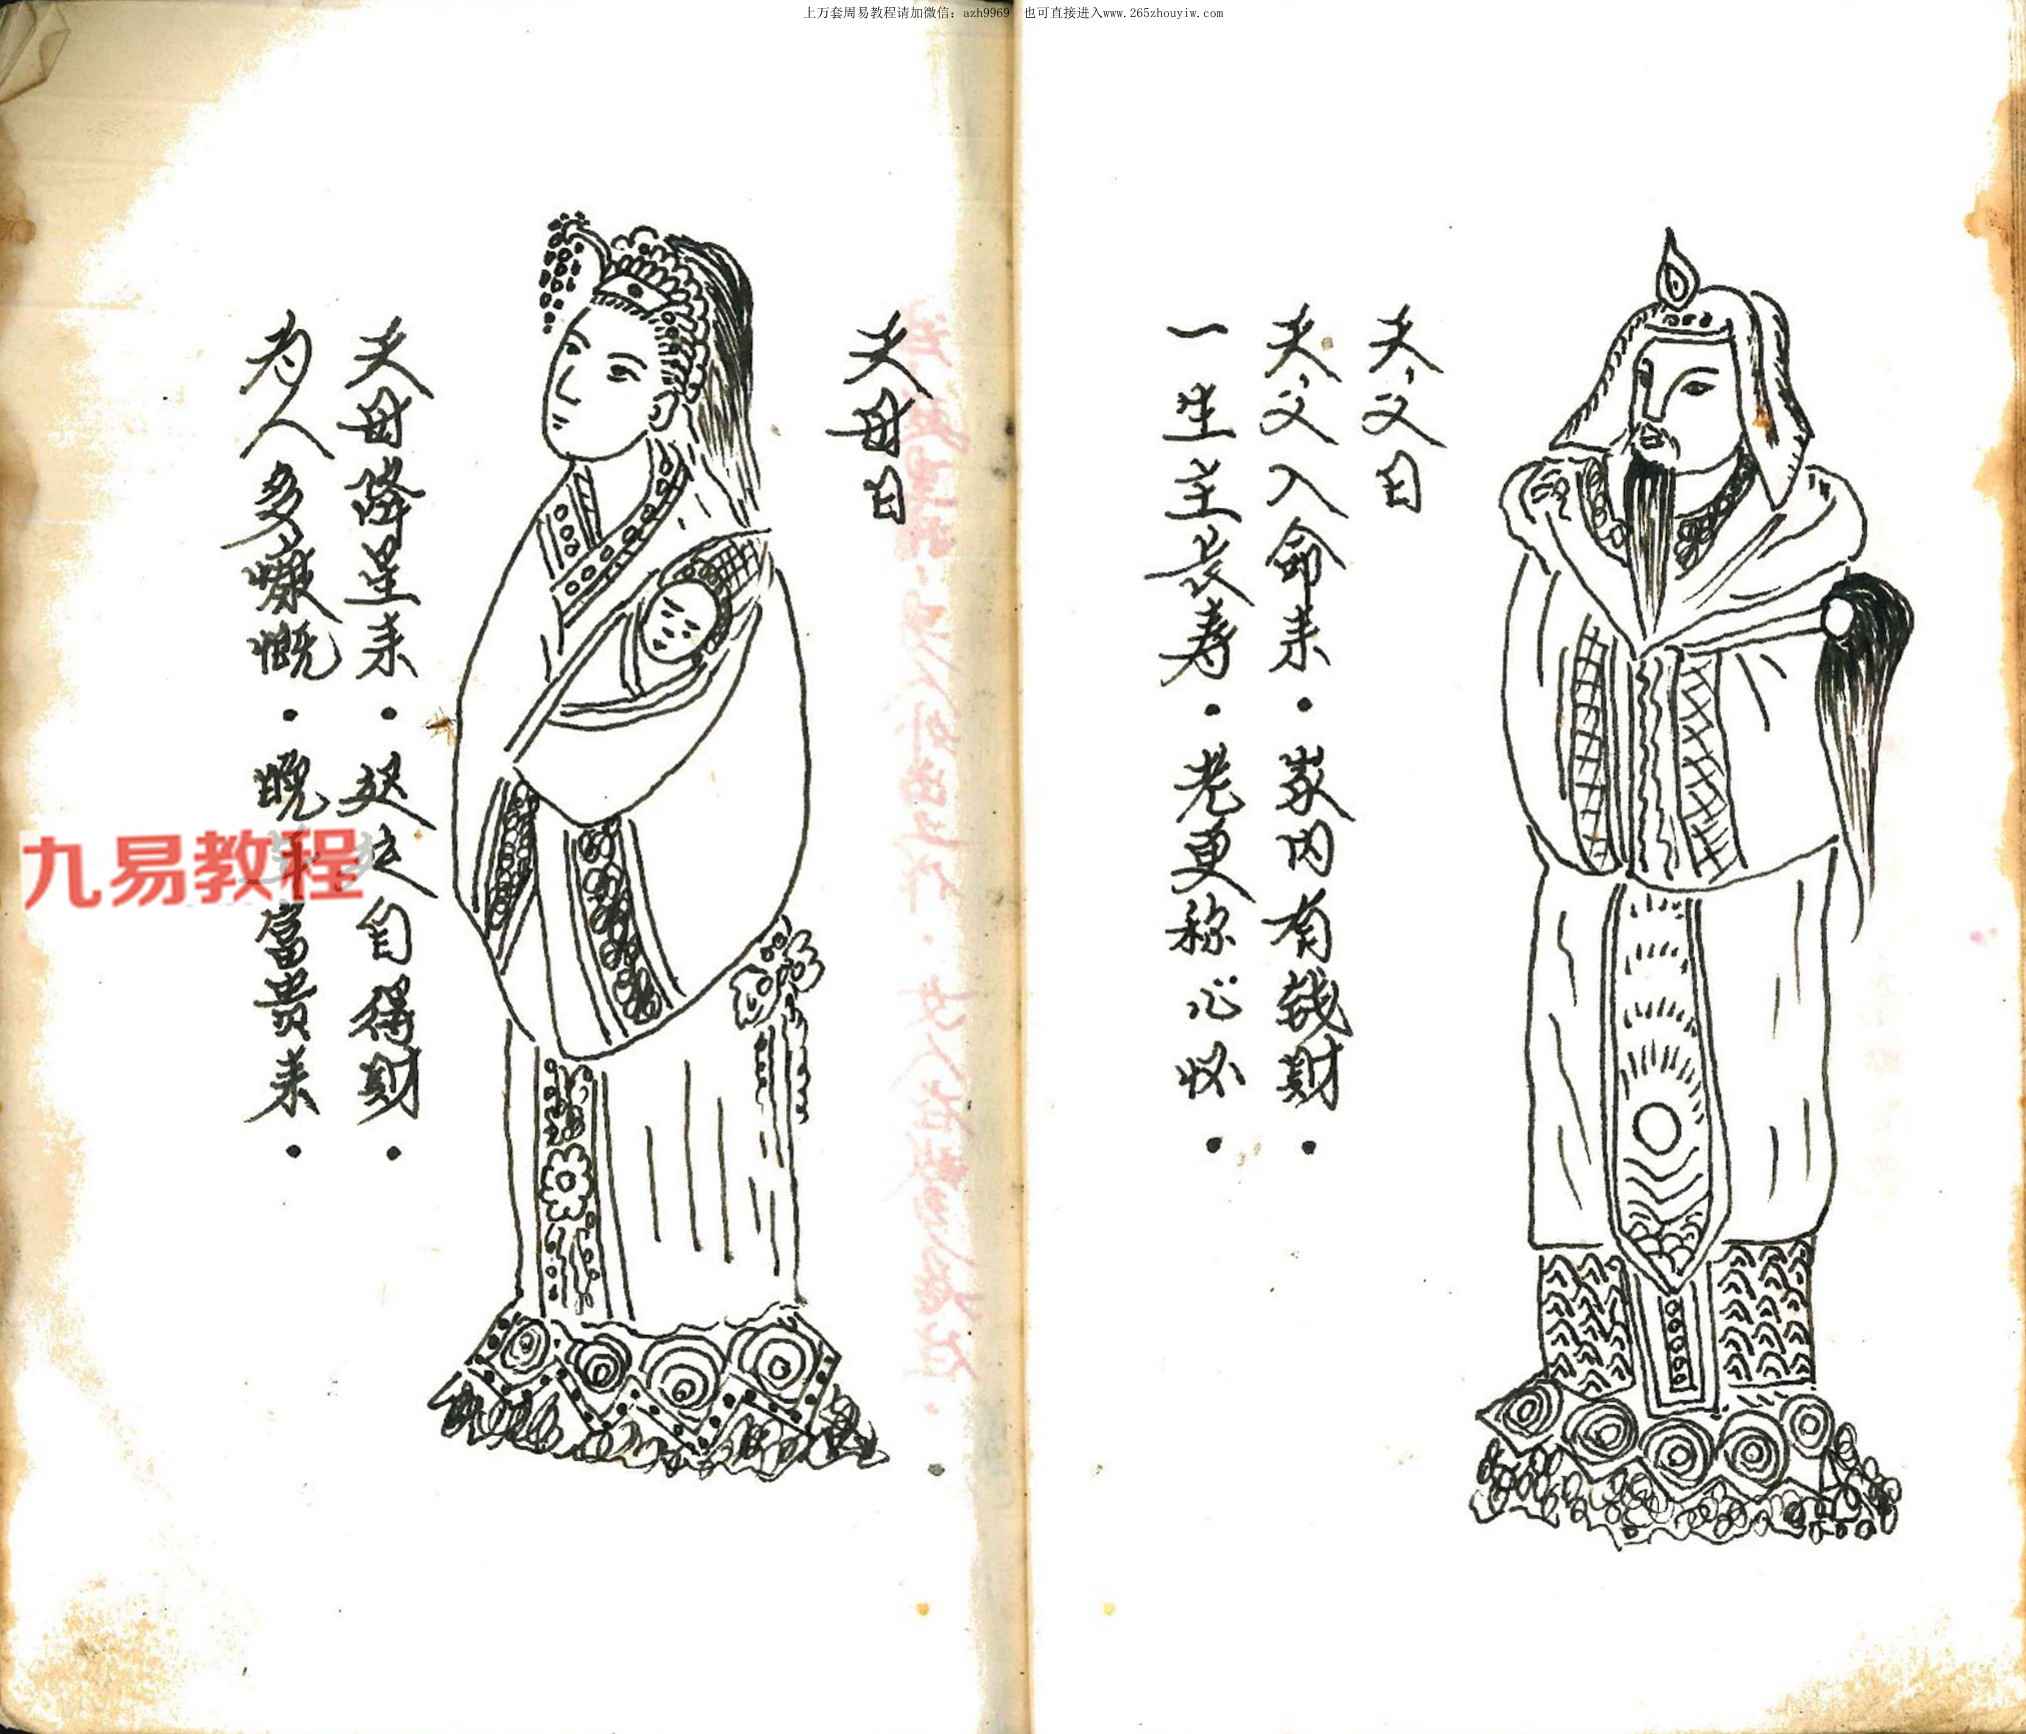 上万套周易教程请加微信：azh9969 也可直接进入www.265zhouyiw.com
天父曰
天父入命来·家内有钱财·
一生主长寿·老更称心怀·
天母曰
天母降星来·处之自得财·
为人多慷慨·晚 富贵来·
九易教程